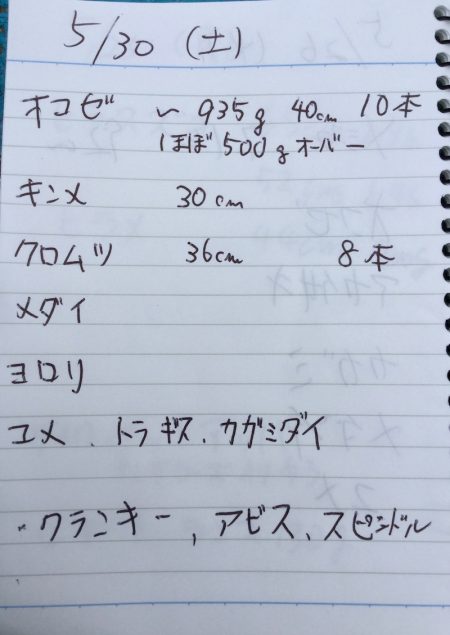 5/30 (土)
オコゼ ～ 935g 40cm 10本
ほぼ500gオーバー
キンメ 30cm
クロムツ 36cm 8本
メダイ
ヨロリ
ユメ、トラギス、カガミダイ
・クランキー、アビス、スピンドル